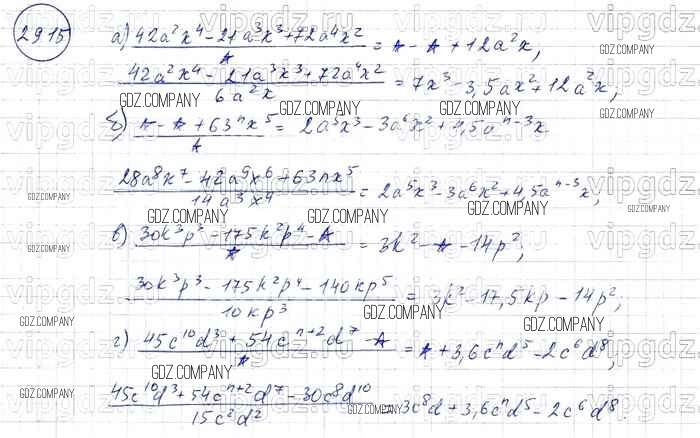 2915
а) (42a²x⁴ - 21a³x³ + 72a⁴x²)/A = A - A + 12a²x,
(42a²x⁴ - 21a³x³ + 72a⁴x²)/(6a²x) = 7x³ - 3,5ax² + 12a²x;
б) (A - A + 63ⁿx⁵)/A = 2a⁵x³ - 3a⁶x² + 4,5aⁿ⁻³x
(28a⁸x⁷ - 42a⁹x⁶ + 63nx⁵)/(14a³x⁴) = 2a⁵x³ - 3a⁶x² + 4,5aⁿ⁻³x;
в) (30k³p³ - 175k²p⁴ - A)/A = 3k² - A - 14p²;
(30k³p³ - 175k²p⁴ - 140kp⁵)/(10kp³) = 3k² - 17,5kp - 14p²;
г) (45c¹⁰d³ + 54cⁿ⁺²d⁷ - A)/A = A + 3,6cⁿd⁵ - 2c⁶d⁸;
(45c¹⁰d³ + 54cⁿ⁺²d⁷ - 30c⁸d¹⁰)/(15c²d²) = 3c⁸d + 3,6cⁿd⁵ - 2c⁶d⁸.
vipgdz.ru
GDZ.COMPANY